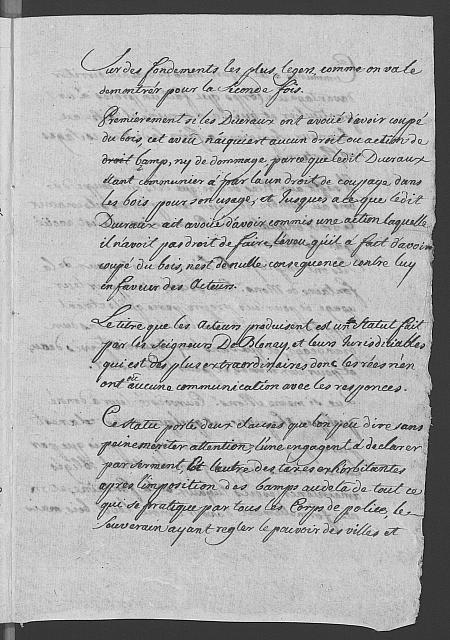 Sur des fondements les plus legers, comme on va le
demontrer pour la Seconde fois.
Premierement si les Ducraux ont avoué d'avoir coupé
du bois, cet aveu n'aquiert aucun droit ou action de
droit bamp, ny de dommage, parce que ledit Ducraux
etant communier a par la un droit de coupage dans
les bois pour son usage, et Jusques a ce que ledit
Ducraux ait avoué d'avoir commis une action laquelle
il n'avoit pas droit de faire, l'aveu qu'il a fait d'avoir
coupé du bois, n'est de nulle consequence contre luy
en faveur des Acteurs.
Le titre que les Acteurs produisent est un Statut fait
par les Seigneurs De Blonay, et leurs Jurisdiciables
qui est des plus extraordinaires donc les rées n'en
ont eû aucune communication avec les responces.
Ce statu porte deux clauses que l'on peu dire sans
peine meriter attention, l'une engagent a declarer
par serment, Et l'autre des taxes exhorbitantes
apres l'imposition des bamps au dela de tout ce
qui se pratique par tous les Corps de police, le
Souverain ayant regler le pouvoir des villes et